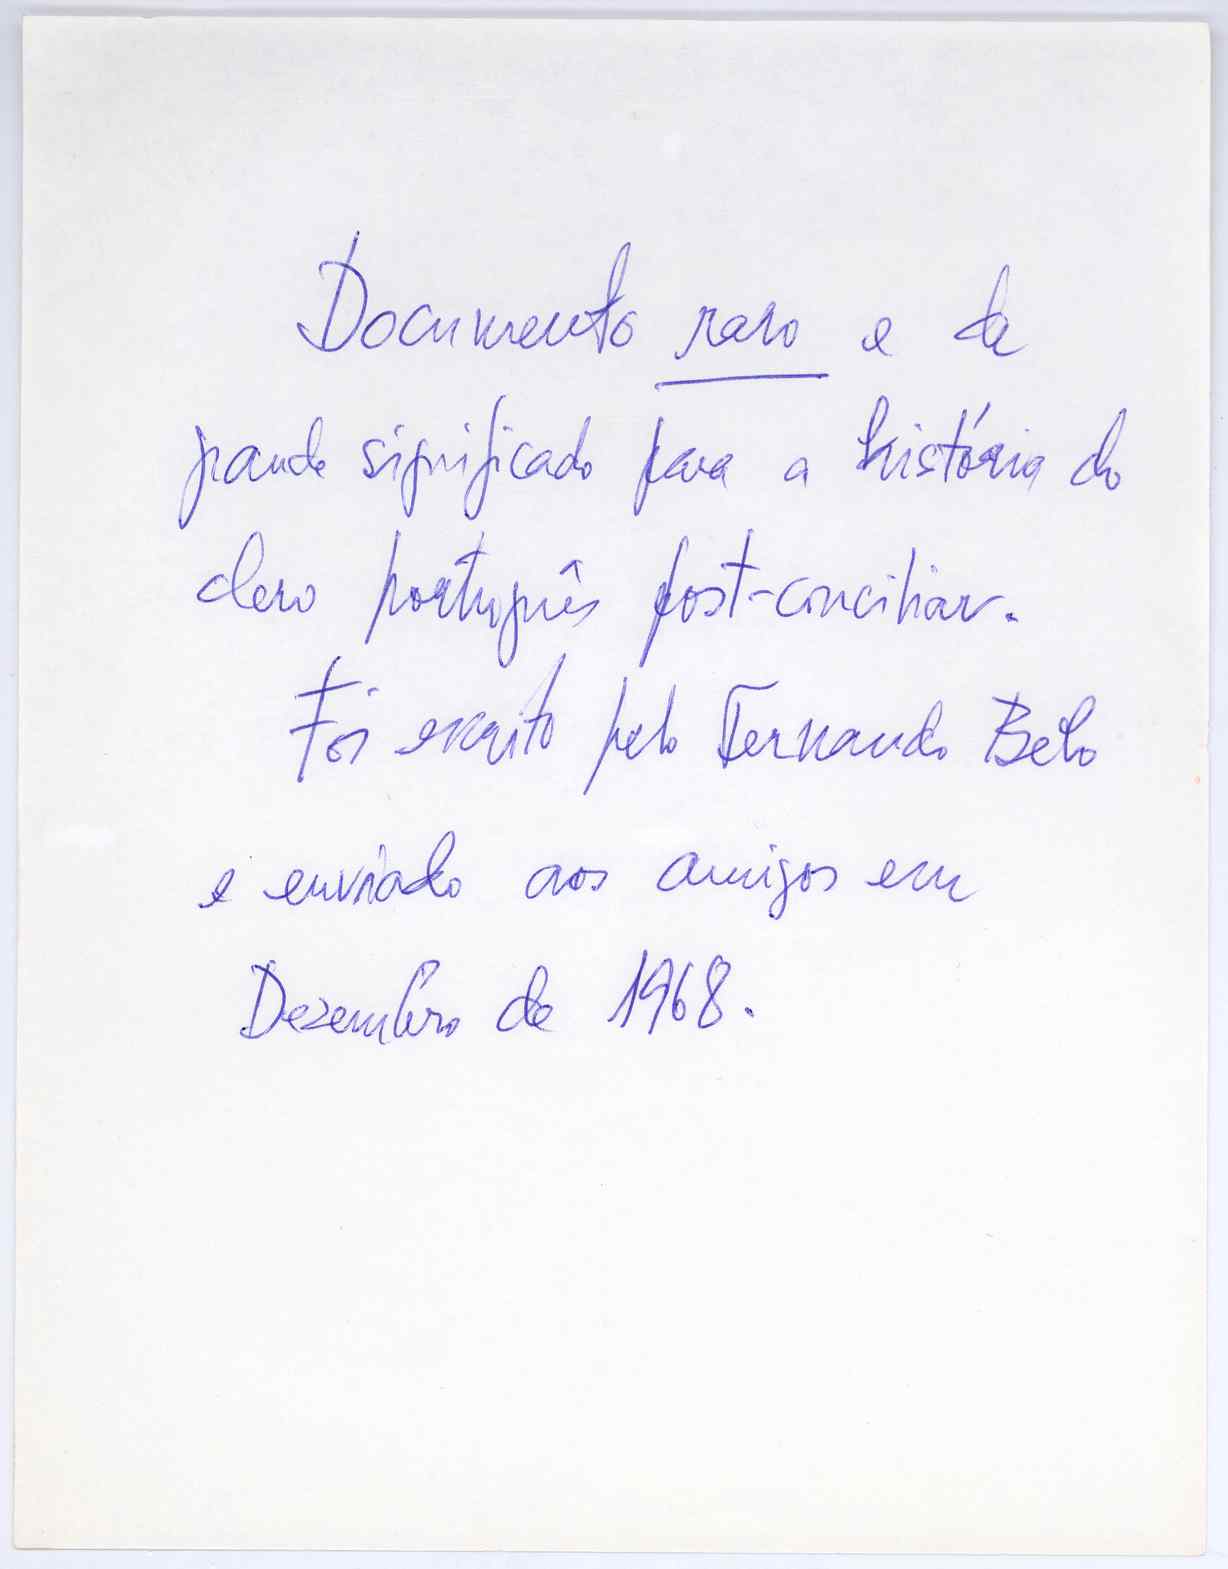 Documento raro e de
grande significado para a história do
clero português post-conciliar.
Foi escrito pelo Fernando Belo
e enviado aos amigos em
Dezembro de 1968.